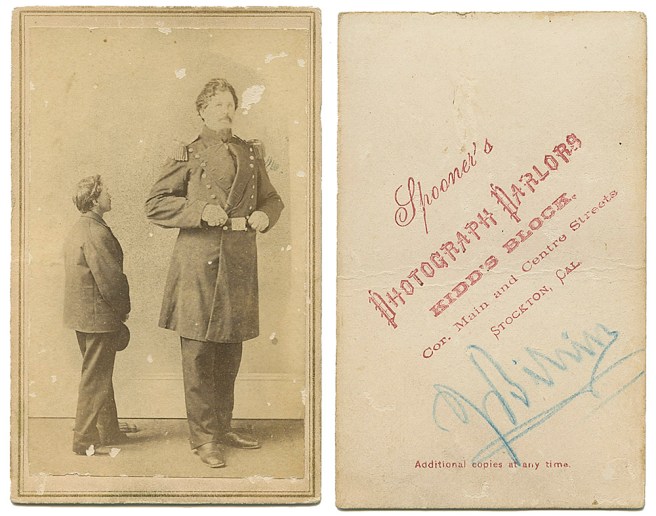 Spooner's
PHOTOGRAPH PARLORS
KIDD'S BLOCK.
Cor. Main and Centre Streets
STOCKTON, CAL
Additional copies at any time.